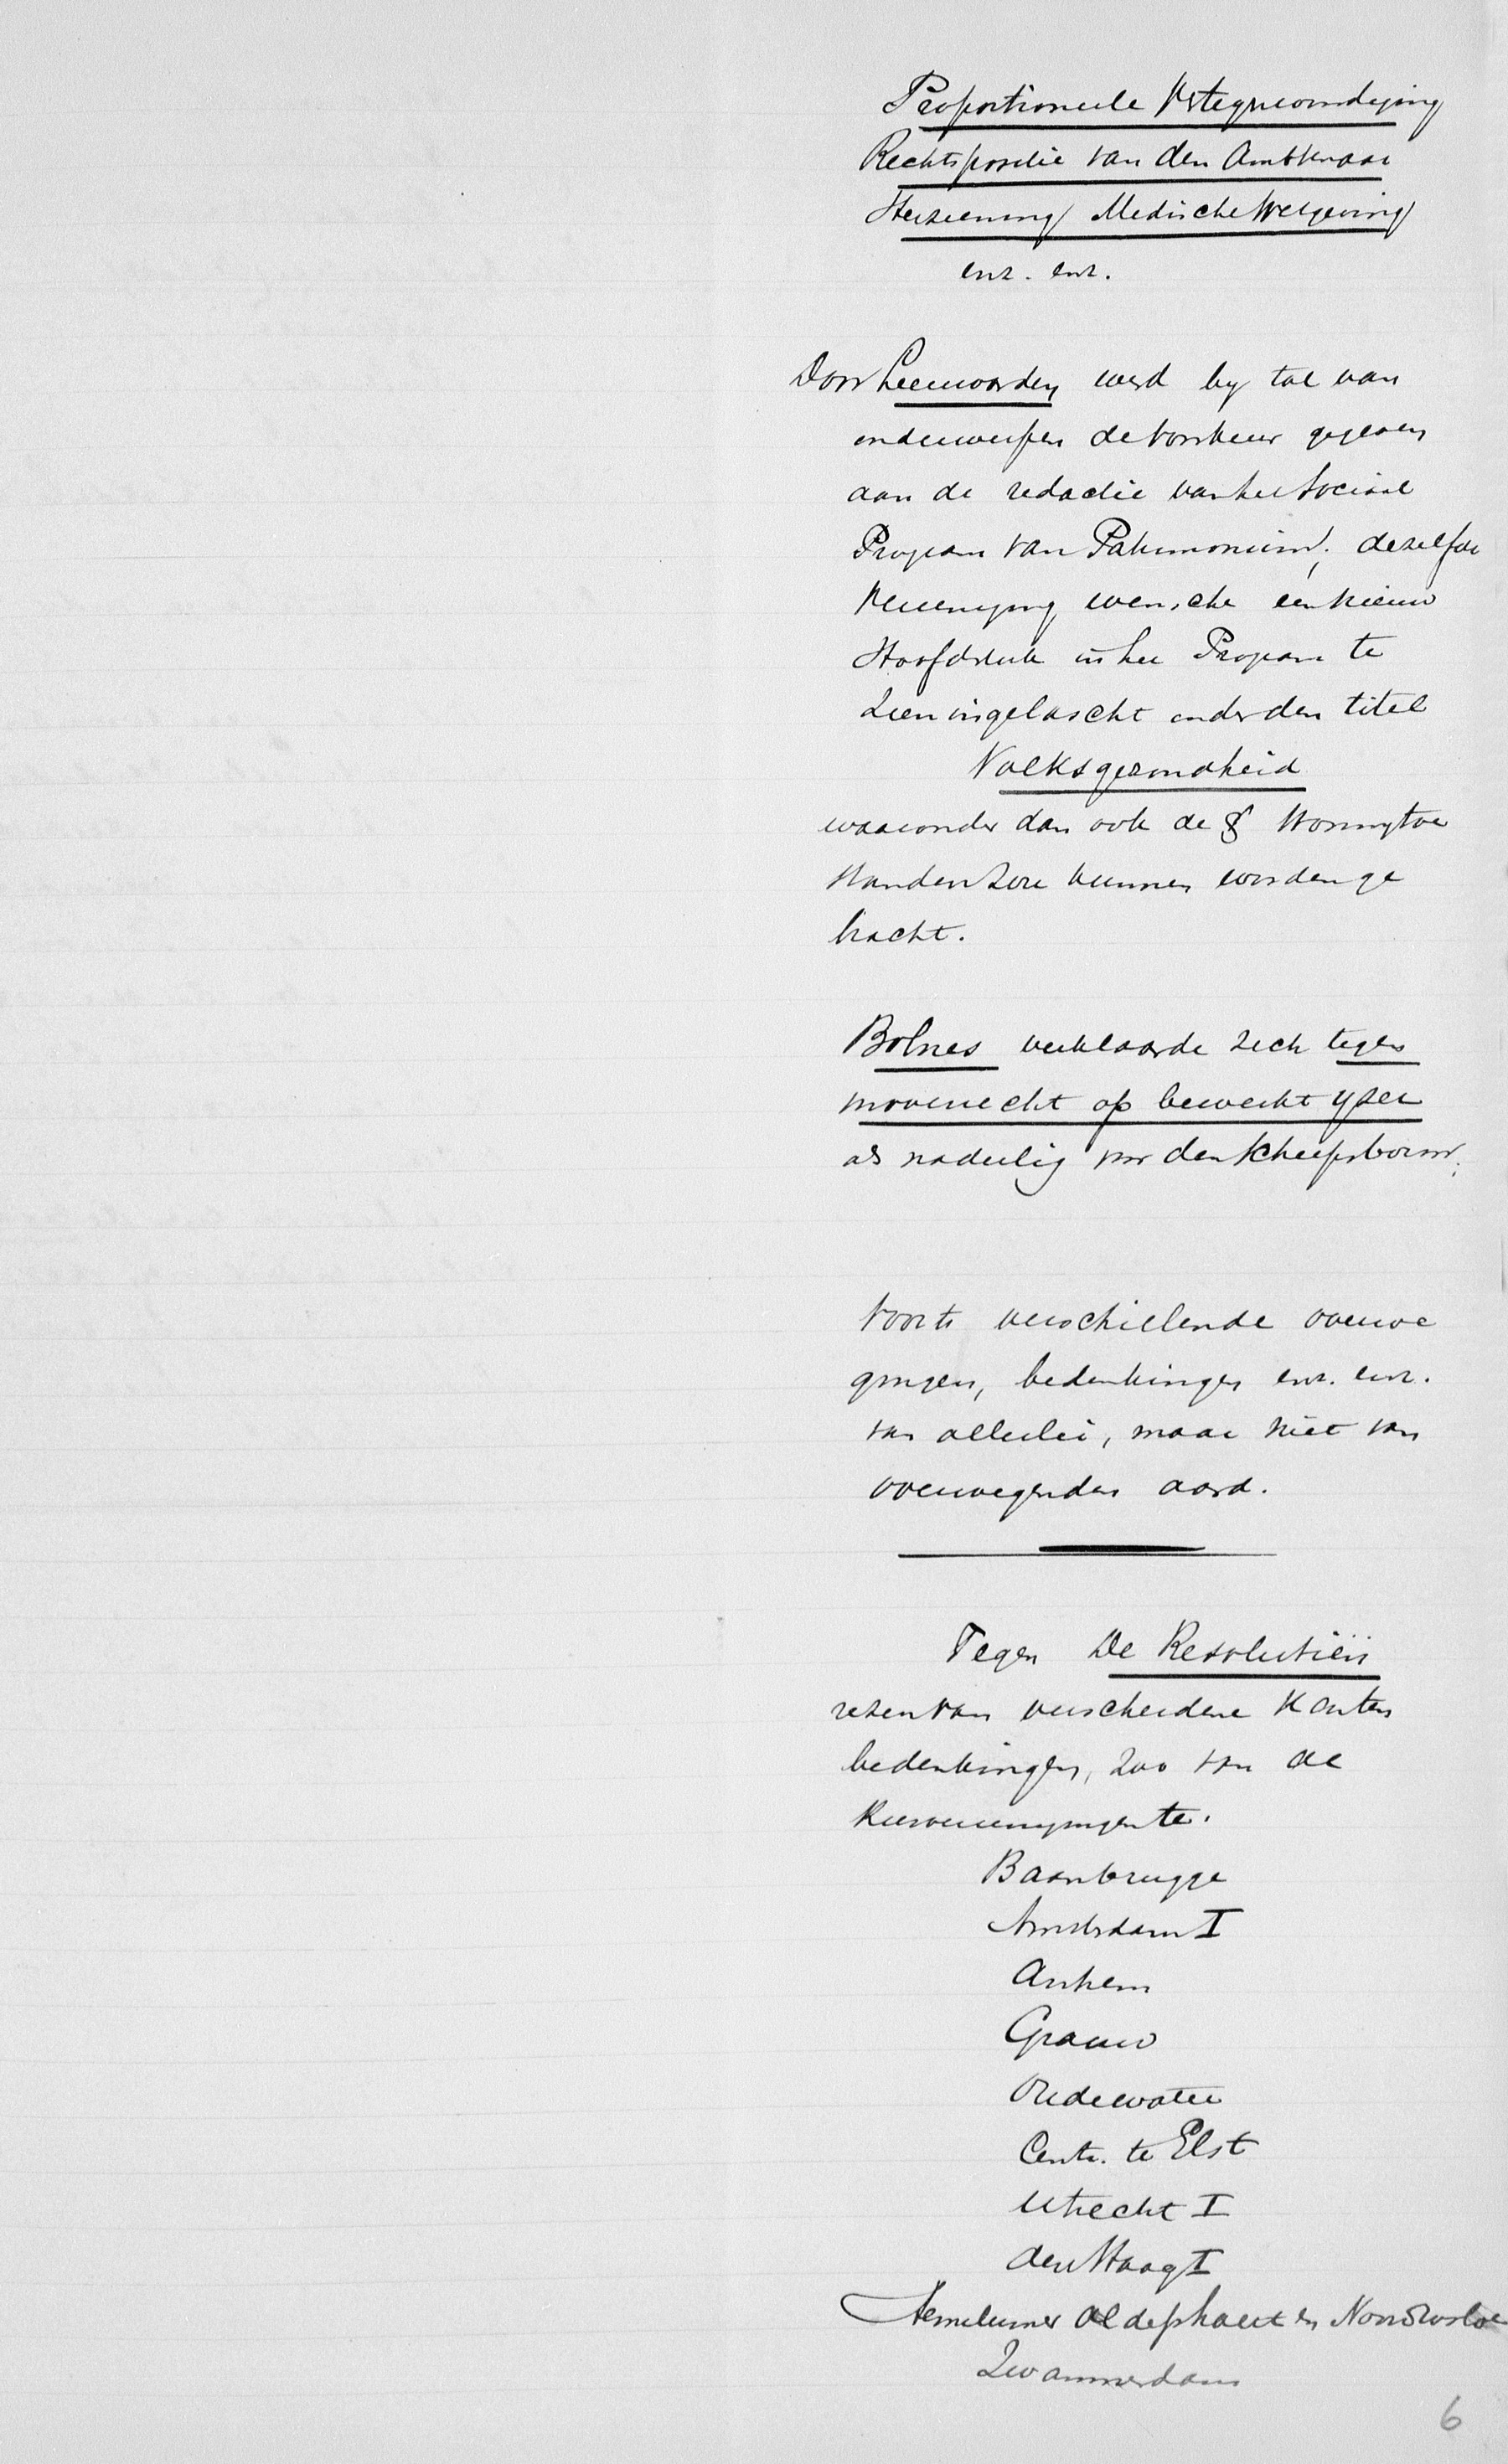 Proportioneele Vertegenwoordiging
Rechtspositie van den Ambtenaar
Herziening Medische Wetgeving
enz. enz.
Door Leeuwarden werd by tal van
onderwerpen de voorkeur gegeven
aan de redactie van het Sociaal
Program van Patrimonium; dezelfde
Vereeniging wensche een nieuw
Hoofdstuk in het Program te
zien ingelascht onder den titel
Volksgezondheid
waaronder dan ook de § Woningtoe
standen zou kunnen worden ge
bracht.
Bolnes verklaarde zich tegen
invoerrecht op bewerkt yzer
als nadeelig voor den scheepsbouw.
Voorts verschillende overwe
gingen, bedenkingen enz. enz.
van allerlei, maar niet van
overwegenden aard.
Tegen De Resolutiën
rezen van verscheidene Kanten
bedenkingen, zoo van de
Kiesvereenigingen te.
Baambrugge
Amsterdam I
Arnhem
Grauw
Oudewater
Centr. te Elst
Utrecht I
den Haag I
Hemelumer Oldephaert en Noordwolde
Zwammerdam
6